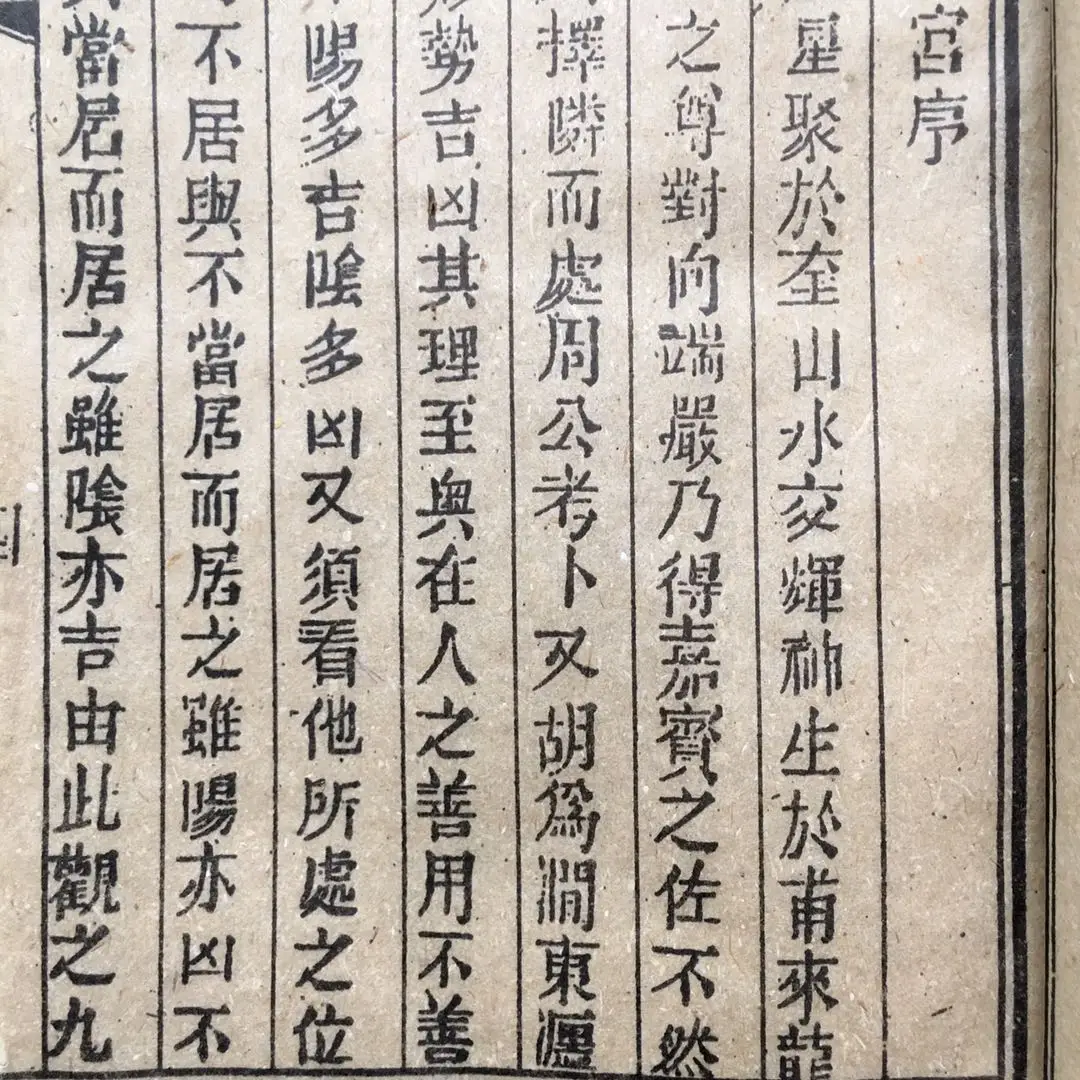 宮序
星聚於奎山水交輝神生於甫來龍
之尊對向端嚴乃得嘉賓之佐不然
擇隣而處周公考卜又胡為澗東瀍
勢吉凶其理至奧在人之善用不善
陽多吉陰多凶又須看他所處之位
不居與不當居而居之雖陽亦凶不
當居而居之雖陰亦吉由此觀之九